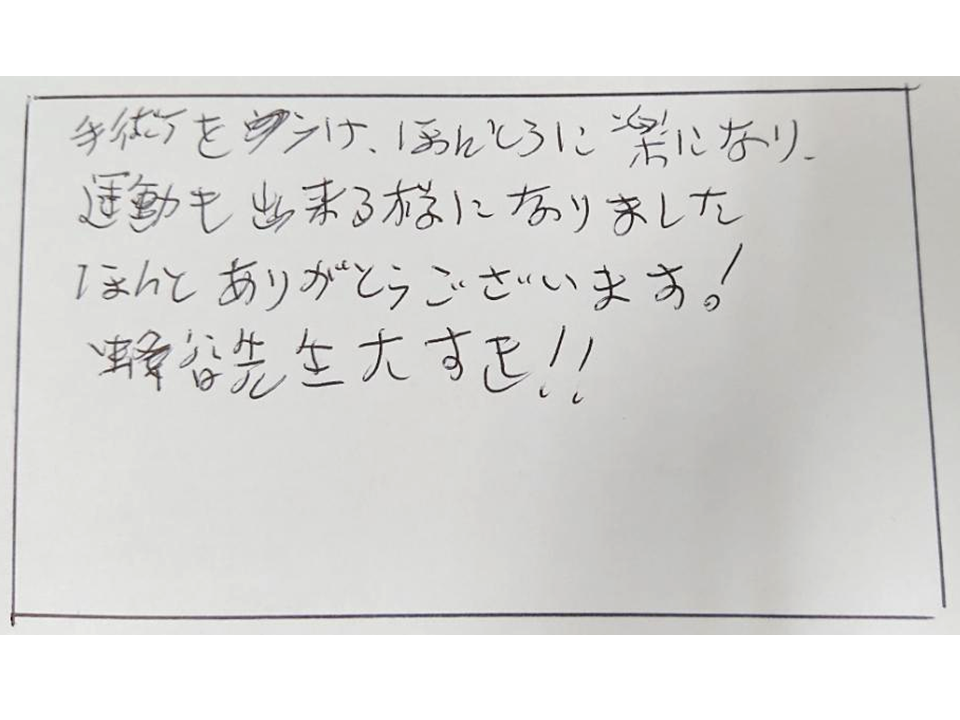 手術をうけ、ほんとうに楽になり、
運動も出来る様になりました
ほんとありがとうございます！
蜂谷先生大すき！！